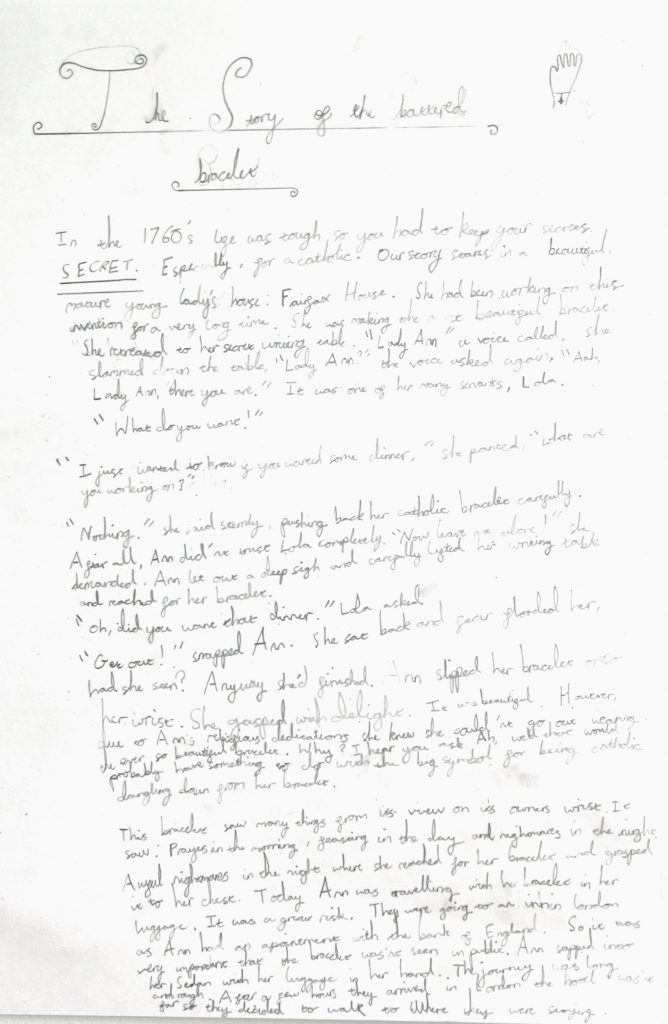 The Story of the battered
bracelet
In the 1760's life was tough so you had to keep your secrets
SECRET. Especially, for a catholic. Our story starts in a beautiful,
mature young lady's house: Fairfax House. She had been working on this
invention for a very long time. She was making the most beautiful bracelet.
"She retreated to her secret writing table. "Lady Ann" a voice called. She
slammed down the table, "Lady Ann?" the voice asked again, "Aah,
Lady Ann, there you are." It was one of her many servants, Lola.
"What do you want!"
"I just wanted to know if you wanted some dinner," she panted, "what are
you working on?"
"Nothing." she said sternly, pushing back her catholic bracelet carefully.
After all, Ann did'nt trust Lola completely. "Now leave me alone!" she
demanded. Ann let out a deep sigh and carefully lifted her writing table
and reached for her bracelet.
"Oh, did you want that dinner." Lola asked
"Get out!" snapped Ann. She sat back and fear flooded her,
had she seen? Anyway she'd finished. Ann slipped her bracelet onto
her wrist. She gasped with delight. It was beautiful. However,
due to Ann's religious dedications she knew she could'nt go out wearing
the ever so beautiful bracelet. Why? I hear you ask. Ah, well there would
probably have something to do with the big symbol for being catholic
dangling down from her bracelet.
This bracelet saw many things from its view on its owners wrist. It
saw: Prayers in the morning, feasting in the day and nighmares in the night.
Awful nighmares in the night where she reached for her bracelet and grasped
it to her chest. Today Ann was travelling with her bracelet in her
luggage. It was a great risk. They were going to an inn in london
as Ann had an apointment with the bank of England. So it was
very important that the bracelet was'nt seen in public. Ann stepped into
her Sedan with her luggage in her hand. The journey was long
and rough. After a few hours they arrived in London the hotel was'nt
far so they decided to walk to where they were staying.